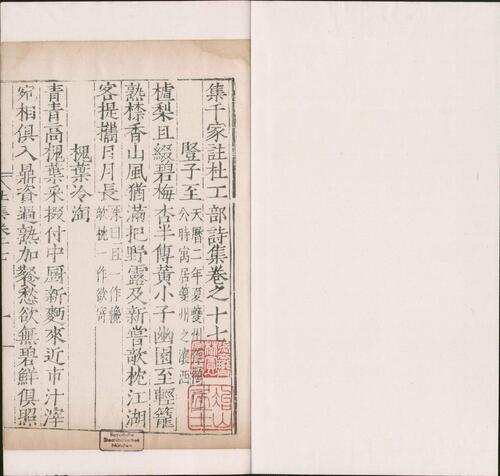 集千家註杜工部詩集卷之十七
豎子至
天曆二年夏夔州
公時寓居夔州之瀼西
樝梨且綴碧梅杏半傳黃小子幽園至輕籠
熟㮈香山風猶滿把野露及新嘗欹枕江湖
客提攜日月長
槐葉冷淘
青青高槐葉采掇付中厨新麵來近市汁滓
宛相俱入鼎資過熟加餐愁欲無碧鮮俱照
Bayerische
Staatsbibliothek
München